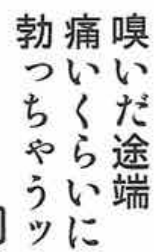 嗅いだ途端
痛いくらいに
勃っちゃうッ